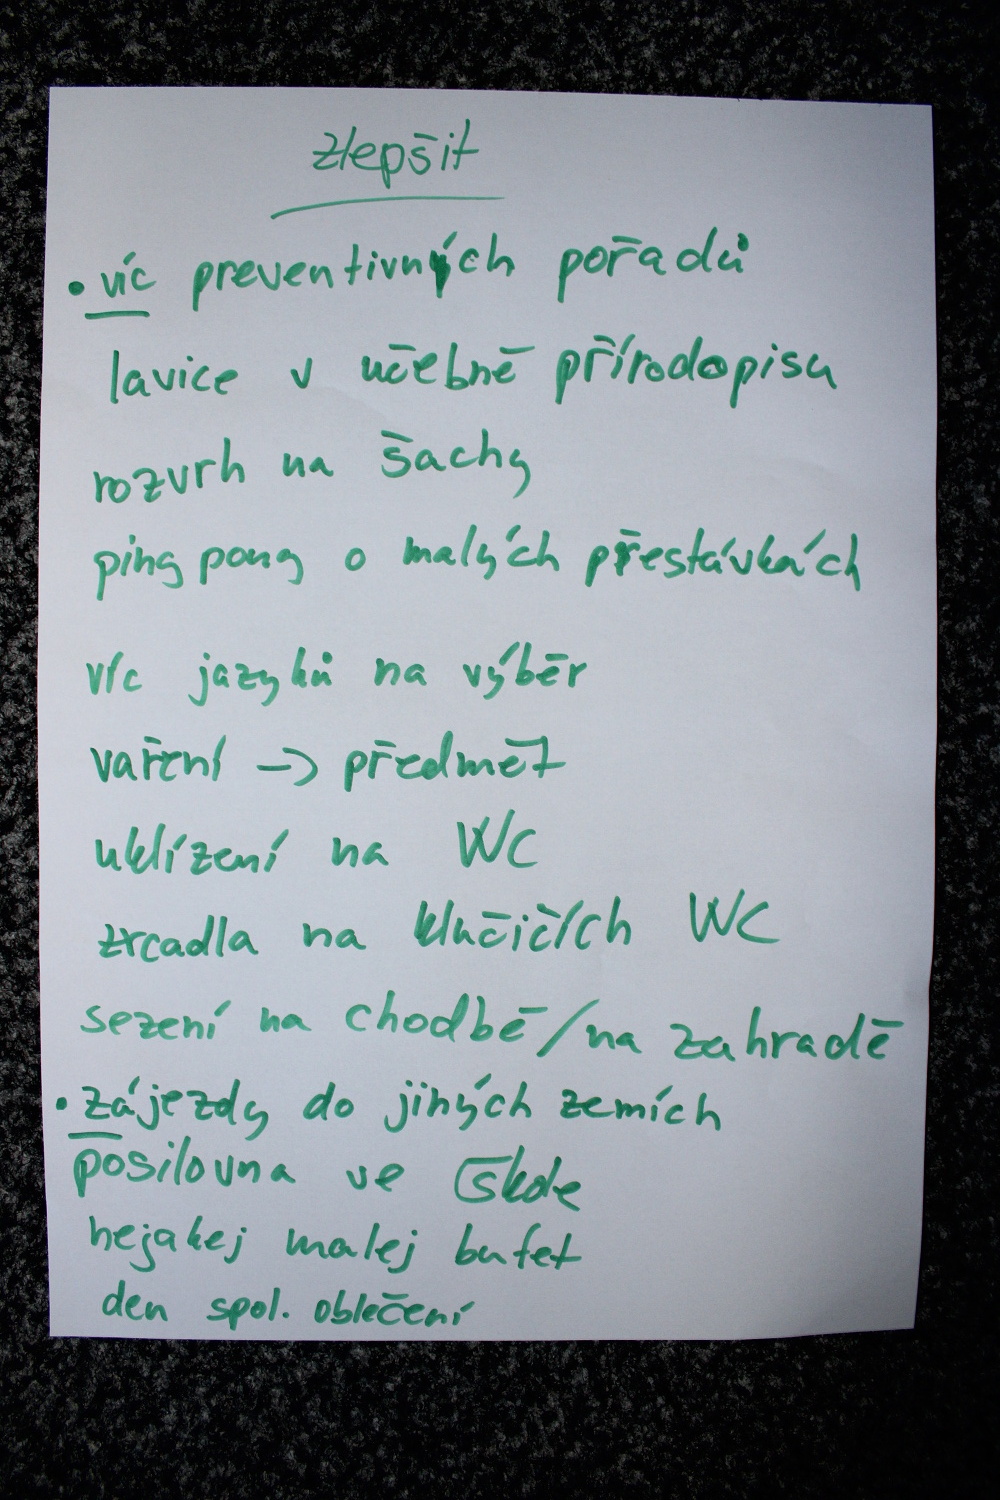 zlepšit
• víc preventivných pořadů
lavice v učebně přírodopisu
rozvrh na šachy
ping pong o malých přestávkách
víc jazyků na výběr
vaření -> předmět
uklízení na WC
zrcadla na klučičích WC
sezení na chodbě/na zahradě
• zájezdy do jiných zemích
posilovna ve škole
nejakej malej bufet
den spol. oblečení